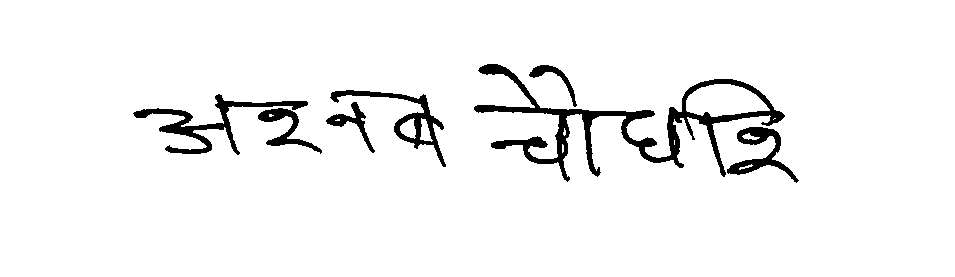 अरनब चौधरि